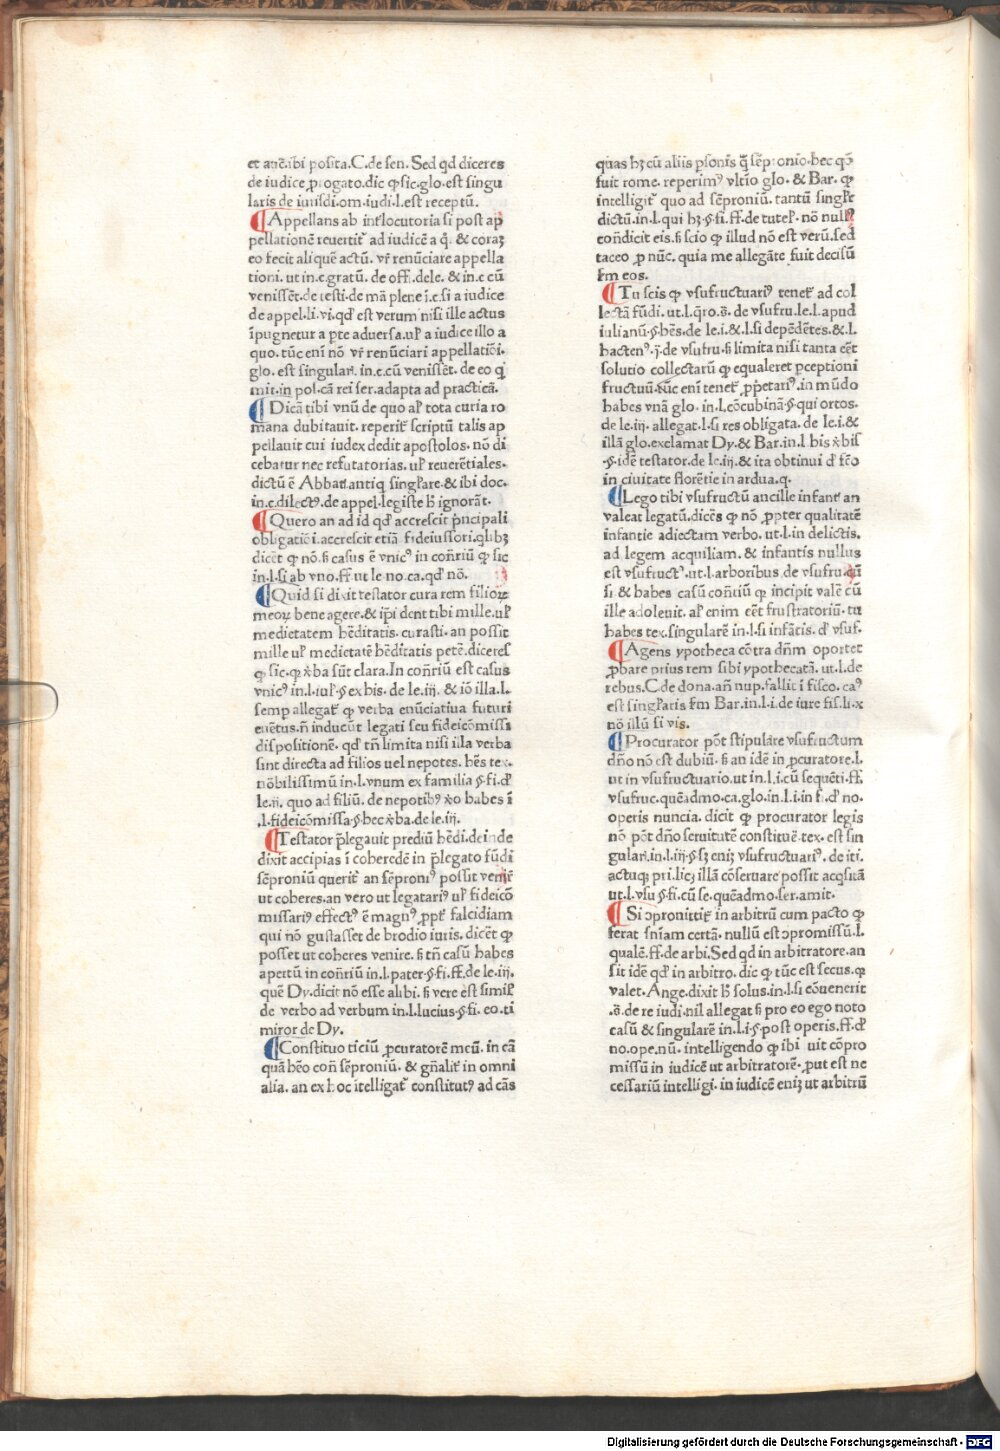 et auē.ibi posita.C.de sen. Sed qd diceres
de iudice prorogato.dic ꝙ sic.glo.est singu
laris de iurisdi.om.iudi.l.est receptū.
¶ Appellans ab int̄locutoria si post ap
pellationē reuertit̄ ad iudicē a q̊. & coraꝫ
eo fecit aliquē actū. vr̄ renūciare appella
tioni. ut in.c.gratū. de off. dele. & in.c cū
venissēt.de testi.de mā plene ī.c.si a iudice
de appel.li.vi.qđ est verum nisi ille actus
īpugnetur a pte aduersa.ul̄ a iudice illo a
quo. tūc enī nō vr̄ renūciari appellatiōi.
glo. est singulari. in.c.cū venissēt. de eo q̊
mit.in pol.cā rei ser.adapta ad practicā.
¶ Dicā tibi vnū de quo al̄ tota curia ro
mana dubitauit. reperit̄ scriptū talis ap
pellauit cui iudex dedit apostolos. nō di
cebatur nec refutatorias. ul̄ reuerētiales.
dictū ē Abbati.antiq̊ singl̄are.& ibi doc.
in.c.dilectꝰ.de appel.legiste h̄ ignorāt.
¶ Quero an ad id qđ accrescit p̄ncipali
obligatiōi.accrescit etiā fideiussori.qlibꝫ
dicēt ꝙ nō.ß casus ē vnicꝰ in cōr̄iū ꝙ sic
in.l.si ab vno.ff.ut le no.ca.qđ nō.
¶ Quid si dixit testator cura rem filioꝝ
meoꝝ bene agere.& ip̄i dent tibi mille.ul̄
medietatem hēditatis. curasti. an possit
mille ul̄ medietatē hēditatis petē.diceres
ꝙ sic.ꝙ v̄ba sūt clara.In cōr̄iū est casus
vnicꝰ in.l.iul̄.§ ex his. de le.iij. & iō illa.l.
semp allegat̄ ꝙ verba enūciatiua futuri
euētus.ñ inducūt legati seu fideicōmissi
dispositionē. qđ tn̄ limita nisi illa verba
sint directa ad filios uel nepotes. hēs tex.
nōbilissimū in.l.vnum ex familia § fi.đ
le.ii. quo ad filiū. de nepotibꝰ v̄o habes ī
.l.fideicōmissa.§ hec v̄ba.de le.iij.
¶ Testator p̄legauit prediū hēdi.deinde
dixit accipias ī coheredē in p̄legato fūdi
sēproniū querit̄ an sēproniꝰ possit venir̄
ut coheres.an vero ut legatariꝰ ul̄ fideicō
missariꝰ effectꝰ ē magnꝰ ꝓpt̄ falcidiam
qui nō gustasset de brodio iuris. dicēt ꝙ
posset ut coheres venire. ß tn̄ casū habes
apertū in cōr̄iū in.l.pater.§ fi.ff.de le.iij.
quē Dy.dicit nō esse alibi. ß vere est simil̄
de verbo ad verbum in.l.lucius.§ fi. eo.ti
miror de Dy.
¶ Constituo ticiū ꝓcuratorē meū. in cā
quā hēo con̄ sēproniū. & gn̄alit̄ in omni
alia. an ex hoc itelligat̄ constitutꝰ ad cās
quas hꝫ cū aliis ꝑsonis q̄ sēpronio.hec q̄o
fuit rome. reperimꝰ vltīo glo. & Bar. ꝙ
intelligit̄ quo ad sēproniū. tantū singl̄r
dictū.in.l.qui hꝫ.§ fi. ff.de tutel̄. nō null̄
cōdicit eis.ß scio ꝙ illud nō est verū.sed
taceo ꝓ nūc. quia me allegāte fuit decisū
ẜm eos.
¶ Tu scis ꝙ vsufructuariꝰ tenet̄ ad col
lectā fūdi. ut.l.qro.§. de vsufru.le.l.apud
iulianū.§ hēs. de le.i.& l.si depēdētes.& l.
hactenꝰ. ff.de vsufru.ß limita nisi tanta eēt
solutio collectarū ꝙ equaleret ꝑceptioni
fructuū.tūc enī tenet̄ ꝓprietariꝰ.in mūdo
habes vnā glo. in.l.cōcubinā.§ qui ortos.
de le.iij. allegat.l.si res obligata. de le.i.&
illā glo.exclamat Dy.& Bar.in.l bis v̄bis
.§.idē testator.de le.iij.& ita obtinui đ fcō
in ciuitate florētie in ardua.q.
¶ Lego tibi vsufructū ancille infant̄ an
valeat legatū.dicēs ꝙ nō ꝓpter qualitatē
infantie adiectam verbo. ut.l.in delictis.
ad legem acquiliam. & infantis nullus
est vsufructꝰ.ut.l.arboribus de vsufru.
si & babes casū cōr̄iū ꝙ incipit valē cū
ille adoleuit. al̄ enim eēt frustratoriū. tu
habes tex.singularē in.l.si infātis. đ vsuf.
¶ Agens ypotheca cōtra dn̄m oportet
ꝓbare prius rem sibi ypothecatā. ut.l.de
rebus.C.de dona.añ nup.fallit ī fisco. caꝰ
est singl̄aris ẜm Bar.in.l.i.de iure fis.li.x
nō illū si vis.
¶ Procurator pōt stipulare vsufructum
dn̄o nō est dubiū. ß an idē in ꝓcuratore.l.
ut in vsufructuario.ut in.l.i.cū sequēti.ff.
vsufruc.quēadmo.ca.glo.in.l.i.in fi.đ no.
operis nuncia. dicit ꝙ procurator legis
nō pōt dn̄o seruitutē constituē.tex. est sin
gulari.in.l.iij.§ sꝫ enīꝫ vsufructuariꝰ. de iti.
actuqꝫ pri.licꝫ illā cōseruare possit acq̊sitā
ut.l.vsu.§ fi.cū se. quēadmo.ser.amit.
¶ Si ꝯpromittit̄ in arbitrū cum pacto ꝙ
ferat sn̄iam certā. nullū est ꝯpromissū.l.
qualē.ff.de arbi.Sed qđ in arbitratore.an
sit idē qđ in arbitro. dic ꝙ tūc est secus.ꝙ
valet. Ange.dixit h̄ solus.in.l.si cōuenerit
.§.de re iudi.nil allegat ß pro eo ego noto
casū & singularē in.l.i.§ post operis.ff.đ
no.ope.nū. intelligendo ꝙ ibi uit cōpro
missū in iudicē ut arbitratorē. ꝓut est ne
cessariū intelligi. in iudicē enīꝫ ut arbitrū
Digitalisierung gefördert durch die Deutsche Forschungsgemeinschaft - DFG